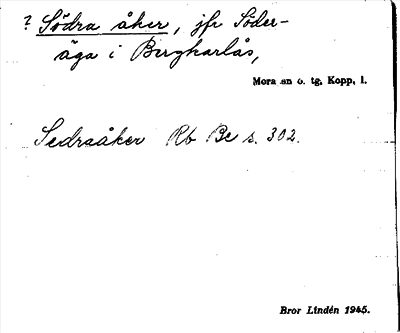 ? Södra åker, jfr Söder-
äga i Bergkarlås,
Mora sn o. tg, Kopp. l.
Sedraåker Rb Bc s. 302.
Bror Lindén 1945.